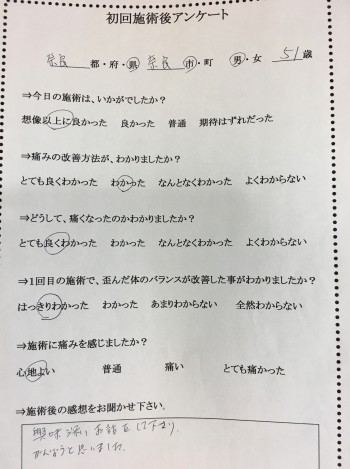 初回施術後アンケート
奈良 都・府・県 奈良 市・町 男・女 51歳
⇒今日の施術は、いかがでしたか?
想像以上に良かった 良かった 普通 期待はずれだった
⇒痛みの改善方法が、わかりましたか?
とても良くわかった わかった なんとなくわかった よくわからない
⇒どうして、痛くなったのかわかりましたか?
とても良くわかった わかった なんとなくわかった よくわからない
⇒1回目の施術で、歪んだ体のバランスが改善した事がわかりましたか?
はっきりわかった わかった あまりわからない 全然わからない
⇒施術に痛みを感じましたか?
心地よい 普通 痛い とても痛かった
⇒施術後の感想をお聞かせ下さい。
興味深いお話をして下さり、
がんばろうと思いました。